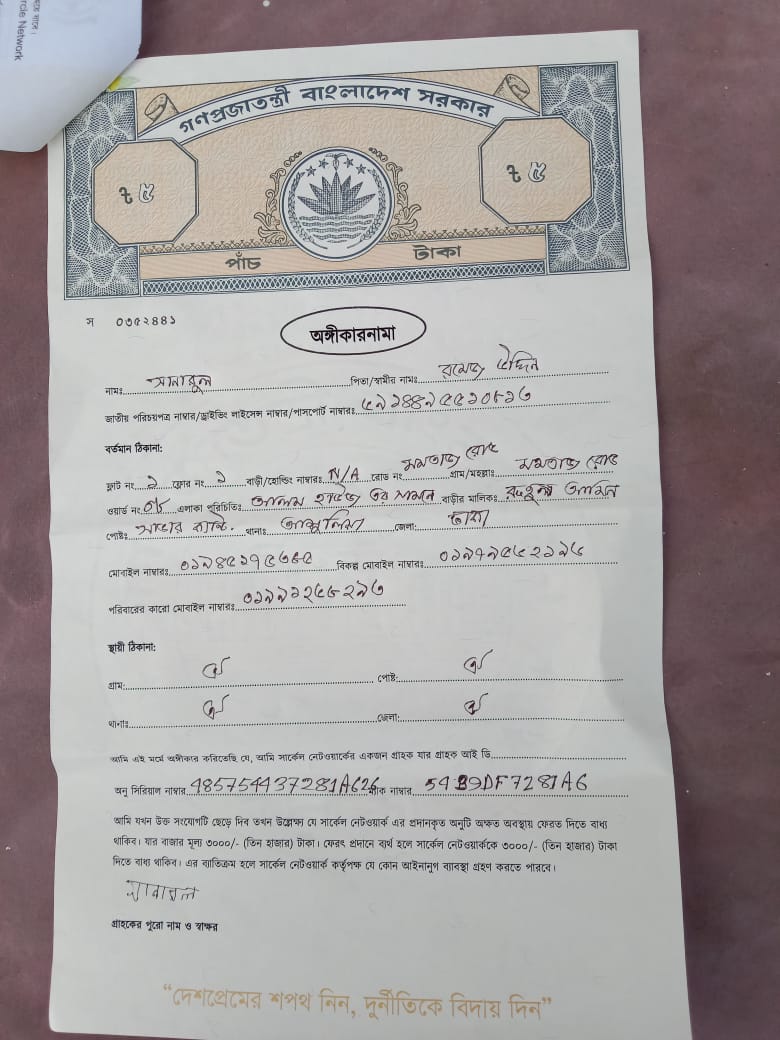 rcle Network
গণপ্রজাতন্ত্রী বাংলাদেশ সরকার
৳ ৫
৳ ৫
পাঁচ
টাকা
স ০৩৫২৪৪১
অঙ্গীকারনামা
নামঃ পিতা/স্বামীর নামঃ রমেজ উদ্দিন
জাতীয় পরিচয়পত্র নাম্বার/ড্রাইভিং লাইসেন্স নাম্বার/পাসপোর্ট নাম্বারঃ
বর্তমান ঠিকানা:
ফ্লাট নং ১ ফ্লোর নং ১ বাড়ী/হোল্ডিং নাম্বারঃ N/A রোড নং মমতাজ রোড গ্রাম/মহল্লাঃ মমতাজ রোড
ওয়ার্ড নং এলাকা পরিচিতিঃ আলম এর সামনে বাড়ীর মালিকঃ আমিন
পোষ্টঃ সাভার ক্যান্ট. থানাঃ আশুলিয়া জেলা: ঢাকা
মোবাইল নাম্বারঃ বিকল্প মোবাইল নাম্বারঃ
পরিবারের কারো মোবাইল নাম্বারঃ
স্থায়ী ঠিকানা:
গ্রাম: ঐ পোষ্ট: ঐ
থানাঃ ঐ জেলা: ঐ
আমি এই মর্মে অঙ্গীকার করিতেছি যে, আমি সার্কেল নেটওয়ার্কের একজন গ্রাহক যার গ্রাহক আই ডি
অনু সিরিয়াল নাম্বার 485754437281A626 ম্যাক নাম্বার 54B9DF7281A6
আমি যখন উক্ত সংযোগটি ছেড়ে দিব তখন উল্লেক্ষ্য যে সার্কেল নেটওয়ার্ক এর প্রদানকৃত অনুটি অক্ষত অবস্থায় ফেরত দিতে বাধ্য
থাকিব। যার বাজার মূল্য ৩০০০/- (তিন হাজার) টাকা। ফেরৎ প্রদানে ব্যর্থ হলে সার্কেল নেটওয়ার্ককে ৩০০০/- (তিন হাজার) টাকা
দিতে বাধ্য থাকিব। এর ব্যতিক্রম হলে সার্কেল নেটওয়ার্ক কর্তৃপক্ষ যে কোন আইনানুগ ব্যাবস্থা গ্রহণ করতে পারবে।
গ্রাহকের পুরো নাম ও স্বাক্ষর
“দেশপ্রেমের শপথ নিন, দুর্নীতিকে বিদায় দিন”